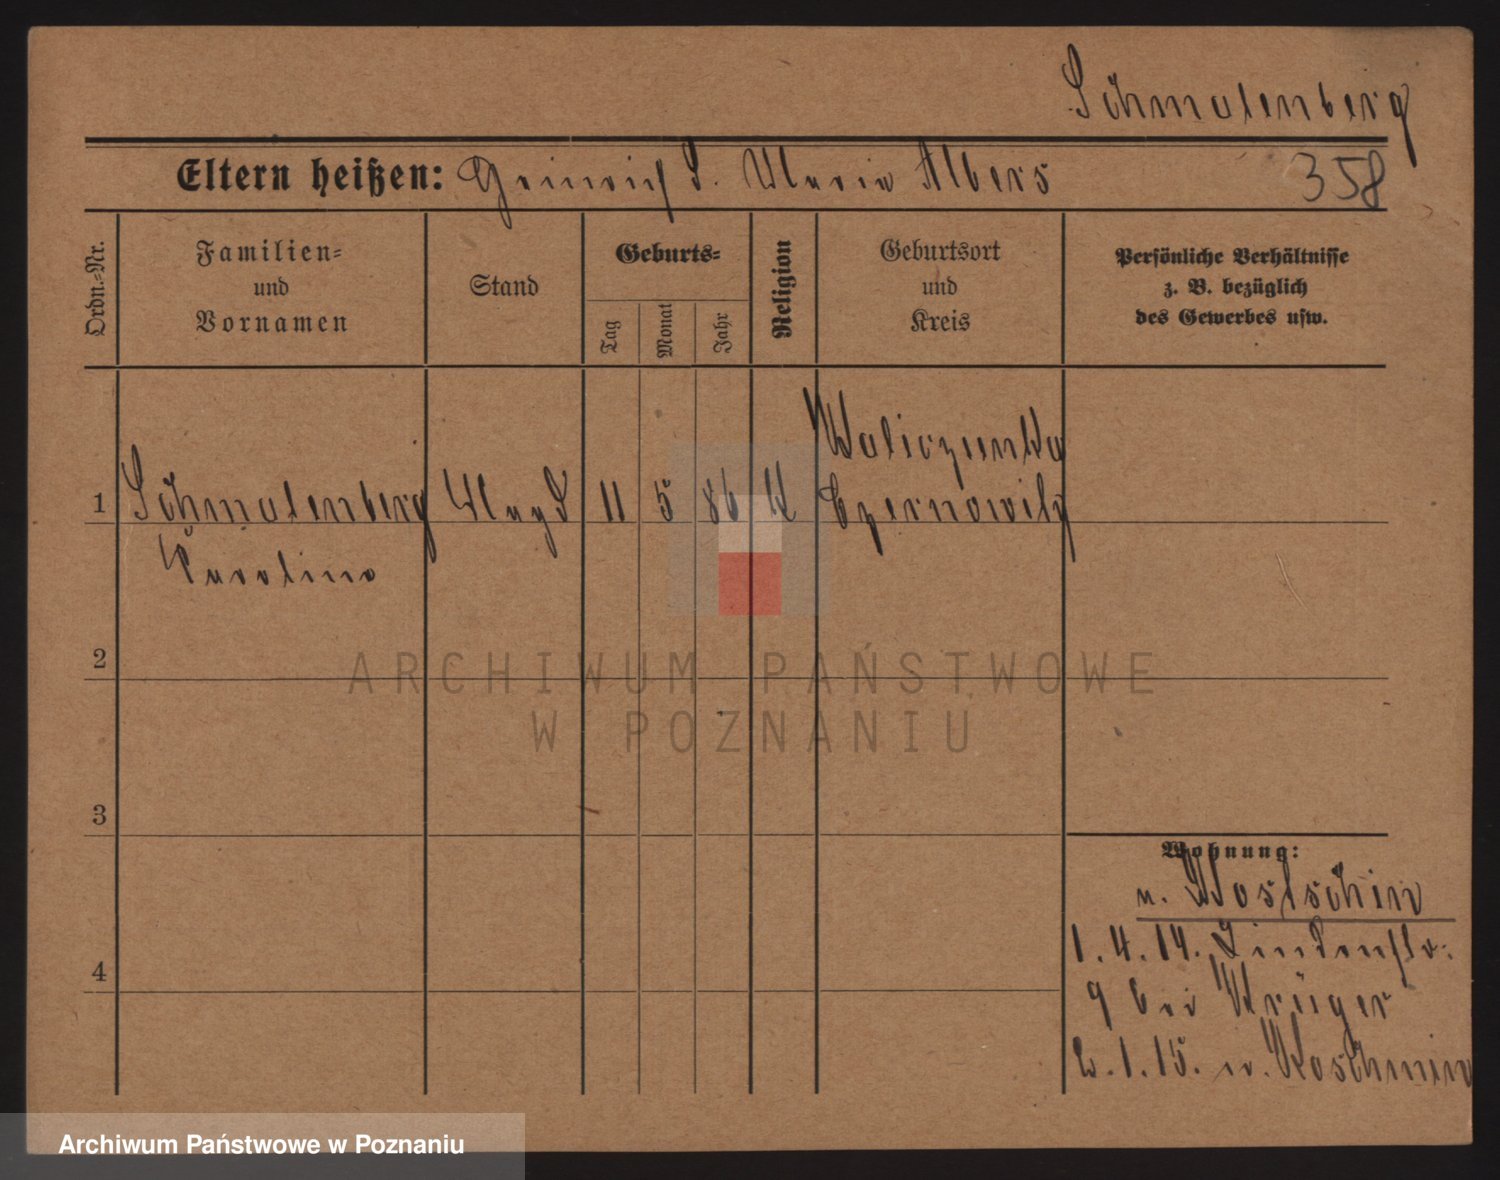 Schmalenberg
Eltern heißen: Heinrich S. Maria Albers 358
Ordn.=Nr.
Familien=
und
Vornamen
Stand
Geburts=
Tag
Monat
Jahr
Religion
Geburtsort
und
Kreis
Persönliche Verhältnisse
z. B. bezüglich
des Gewerbes usw.
1 Schmalenberg Magd 11 5 86 K
Czernowitz
2
3
4
Wohnung:
1.4.14. Lindenstr.
9 bei Krüger
2.1.15. n. Koschmin
ARCHIWUM PAŃSTWOWE
W POZNANIU
Archiwum Państwowe w Poznaniu